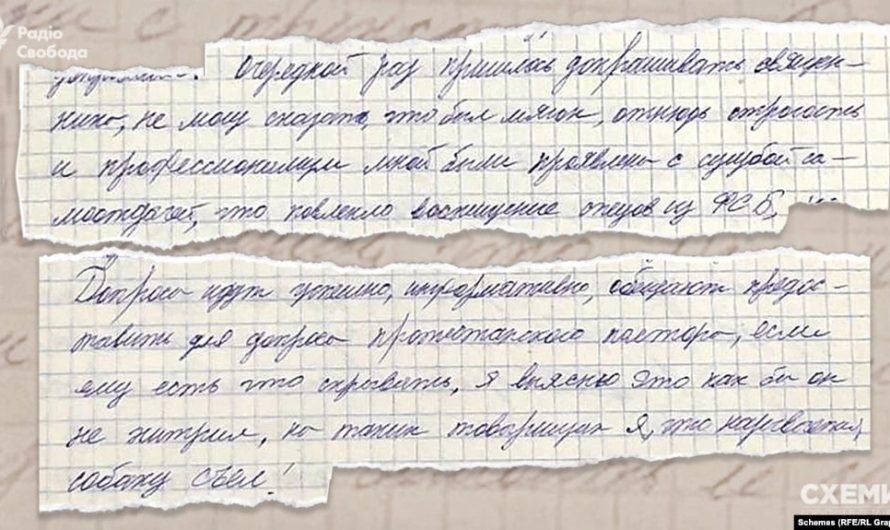 Радіо
Свобода
Очередной раз пришлось допрашивать священ-
ника, не могу сказать, что был мягок, отнюдь строгость
и профессионализм мной были проявлены с сугубой са-
моотдачей, что повлекло восхищение отцов из ФСБ, ...
Допросы идут успешно, информативно, обещают предос-
тавить для допроса протестарского пастора, если
ему есть что скрывать, я выясню это как бы он
не хитрил, на таких товарищах я, что называется,
собаку съел!
СХЕМИ
Schemes (RFE/RL Gra